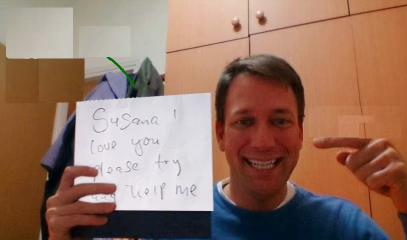 Susana I
love you
please try
and help me